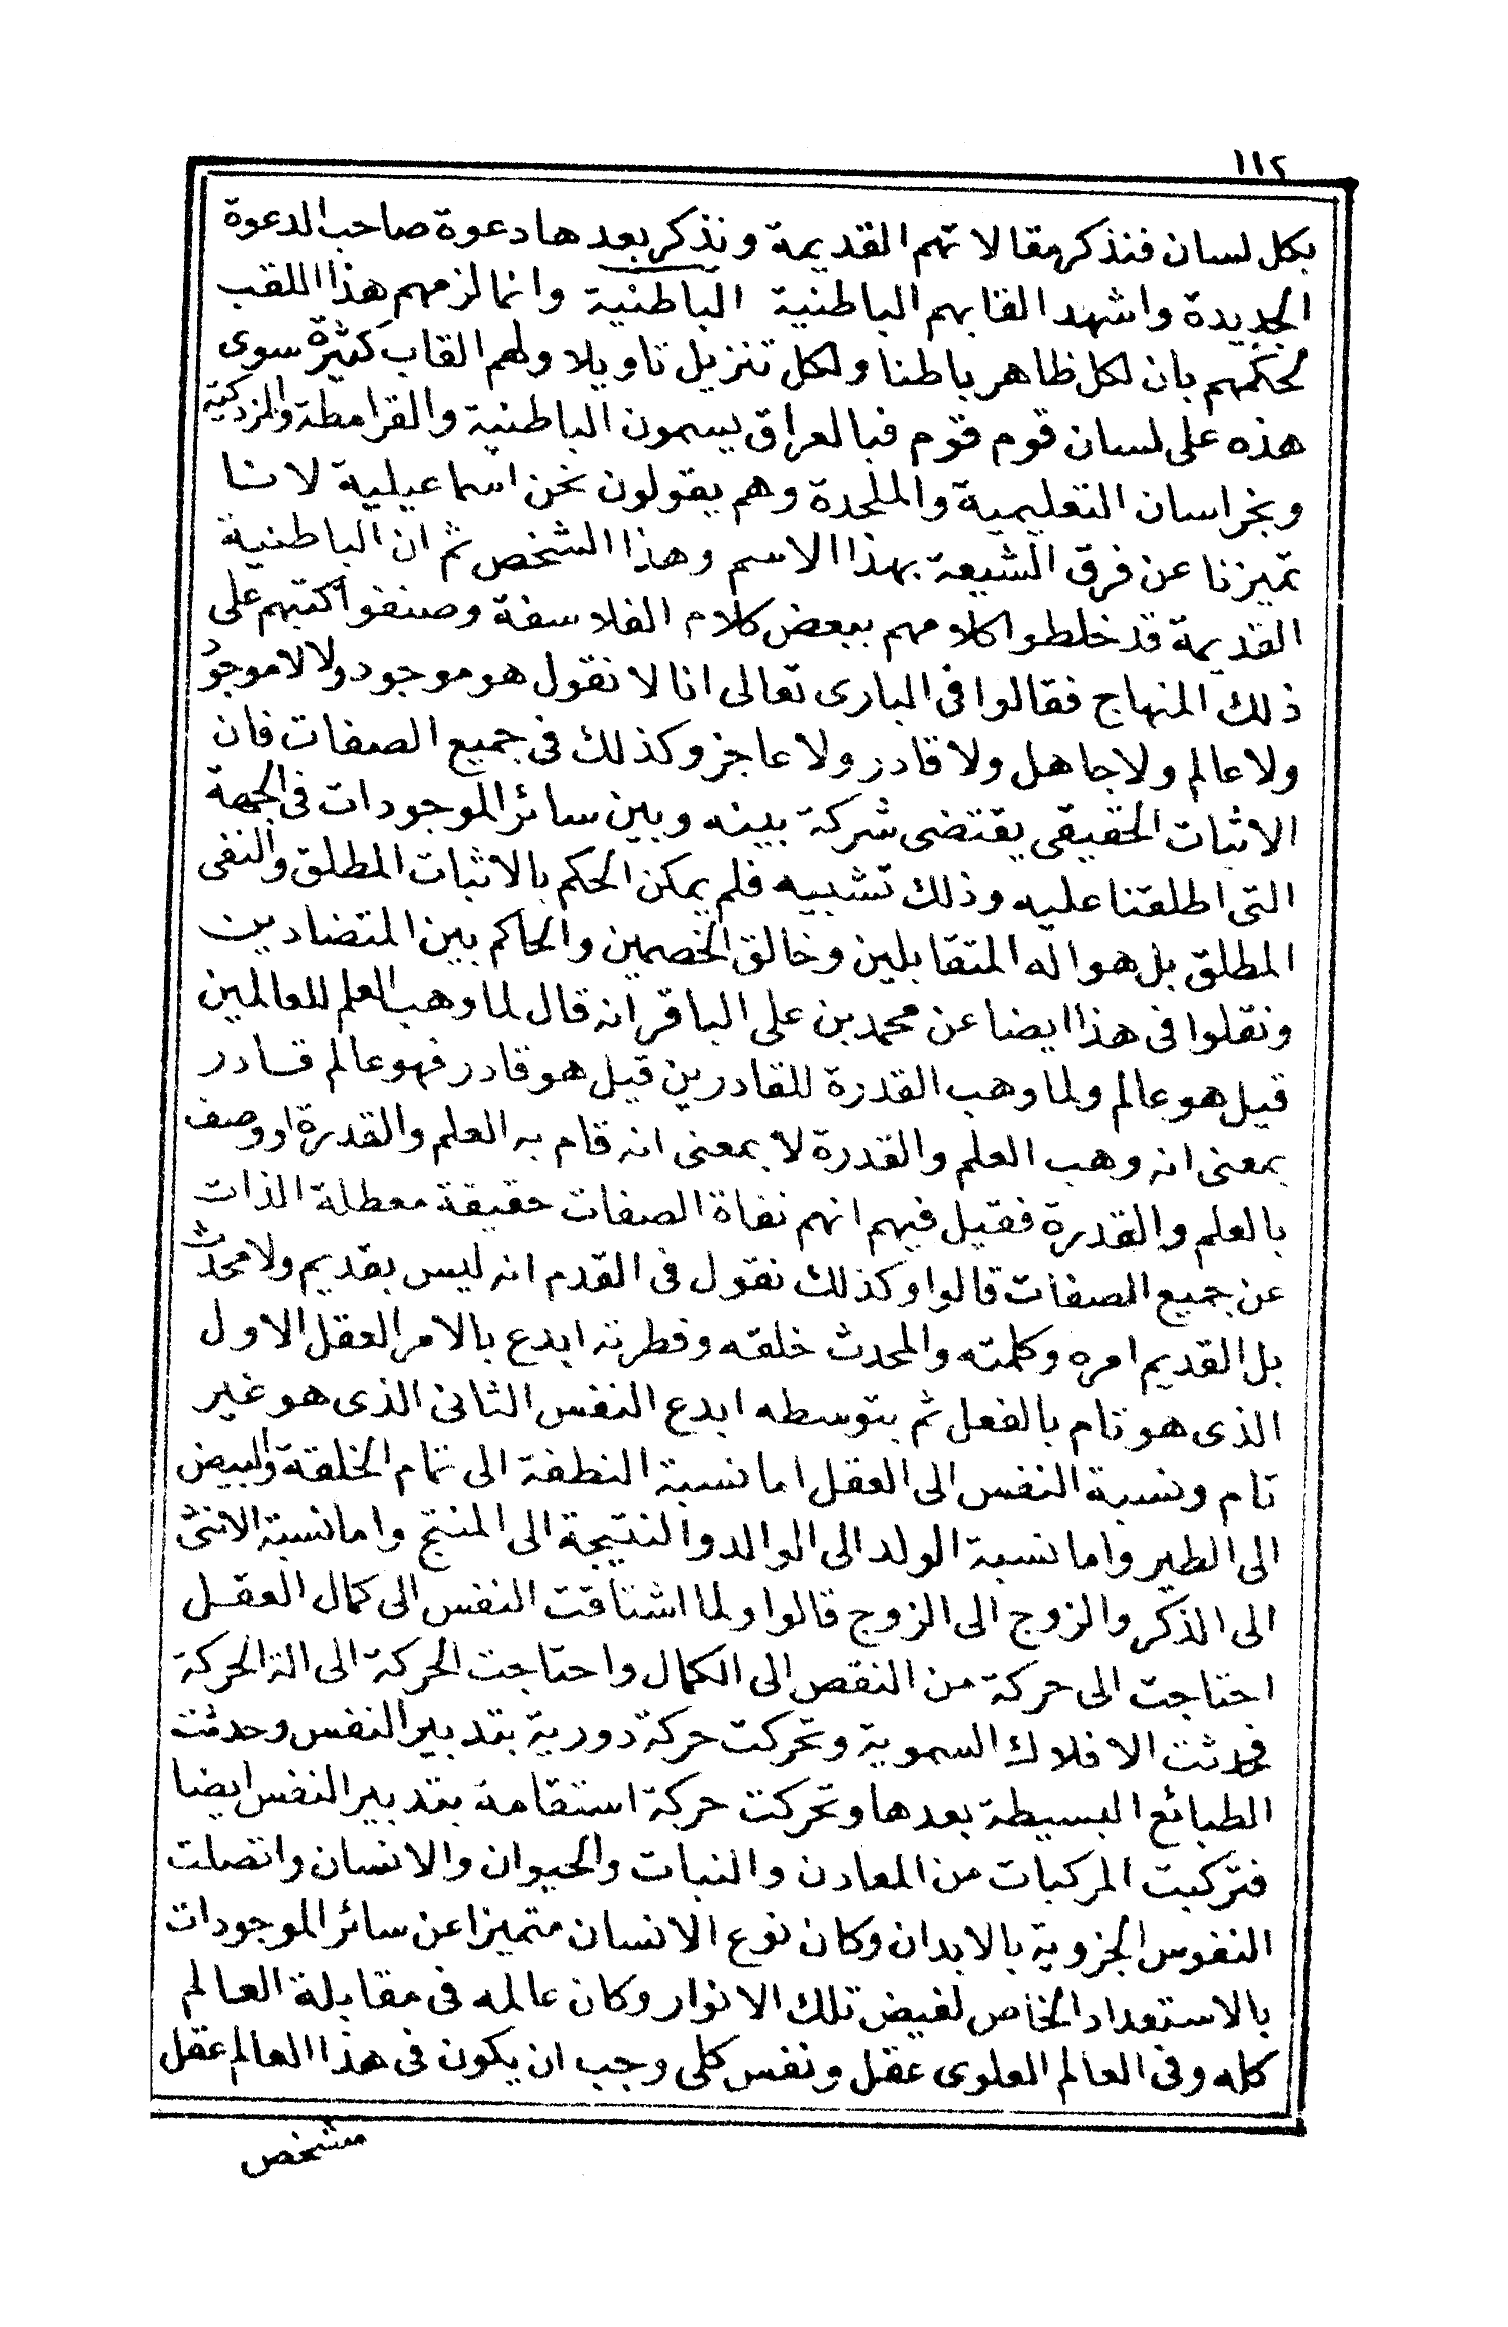 ١١٢
بكل لسان فنذكر مقالاتهم القديمة ونذكر بعدها دعوة صاحب الدعوة
الجديدة واشهد القابهم الباطنية الباطنية وانما لزمهم هذا اللقب
لحكمهم بان لكل ظاهر باطنا ولكل تنزيل تاويلا ولهم القاب كثيرة سوى
هذه على لسان قوم قوم فبالعراق يسمون الباطنية والقرامطة والمزدكية
وبخراسان التعليمية والملحدة وهم يقولون نحن اسماعيلية لاننا
تميزنا عن فرق الشيعة بهذا الاسم وهذا الشخص ثم ان الباطنية
القديمة قد خلطوا كلامهم ببعض كلام الفلاسفة وصنفوا كتبهم على
ذلك المنهاج فقالوا فى البارى تعالى انا لا نقول هو موجود ولا لا موجود
ولا عالم ولا جاهل ولا قادر ولا عاجز وكذلك فى جميع الصفات فان
الاثبات الحقيقى يقتضى شركة بينه وبين سائر الموجودات فى الجهة
التى اطلقنا عليه وذلك تشبيه فلم يمكن الحكم بالاثبات المطلق والنفى
المطلق بل هو اله المتقابلين وخالق الخصمين والحاكم بين المتضادين
ونقلوا فى هذا ايضا عن محمد بن على الباقر انه قال لما وهب العلم للعالمين
قيل هو عالم ولما وهب القدرة للقادرين قيل هو قادر فهو عالم قادر
بمعنى انه وهب العلم والقدرة لا بمعنى انه قام به العلم والقدرة او وصف
بالعلم والقدرة فقيل فيهم انهم نفاة الصفات حقيقة معطلة الذات
عن جميع الصفات قالوا وكذلك نقول فى القدم انه ليس بقديم ولا محدث
بل القديم امره وكلمته والمحدث خلقه وفطرته ابدع بالامر العقل الاول
الذى هو تام بالفعل ثم بتوسطه ابدع النفس الثانى الذى هو غير
تام ونسبة النفس الى العقل اما نسبة النطفة الى تمام الخلقة والبيض
الى الطير واما نسبة الولد الى الوالد والنتيجة الى المنتج واما نسبة الانثى
الى الذكر والزوج الى الزوج قالوا ولما اشتاقت النفس الى كمال العقل
احتاجت الى حركة من النقص الى الكمال واحتاجت الحركة الى الة الحركة
فحدثت الافلاك السموية وتحركت حركة دورية بتدبير النفس وحدثت
الطبائع البسيطة بعدها وتحركت حركة استقامة بتدبير النفس ايضا
فتركبت المركبات من المعادن والنبات والحيوان والانسان واتصلت
النفوس الجزوية بالابدان وكان نوع الانسان متميزا عن سائر الموجودات
بالاستعداد الخاص لفيض تلك الانوار وكان عالمه فى مقابلة العالم
كله وفى العالم العلوى عقل ونفس كلى وجب ان يكون فى هذا العالم عقل
مشخص